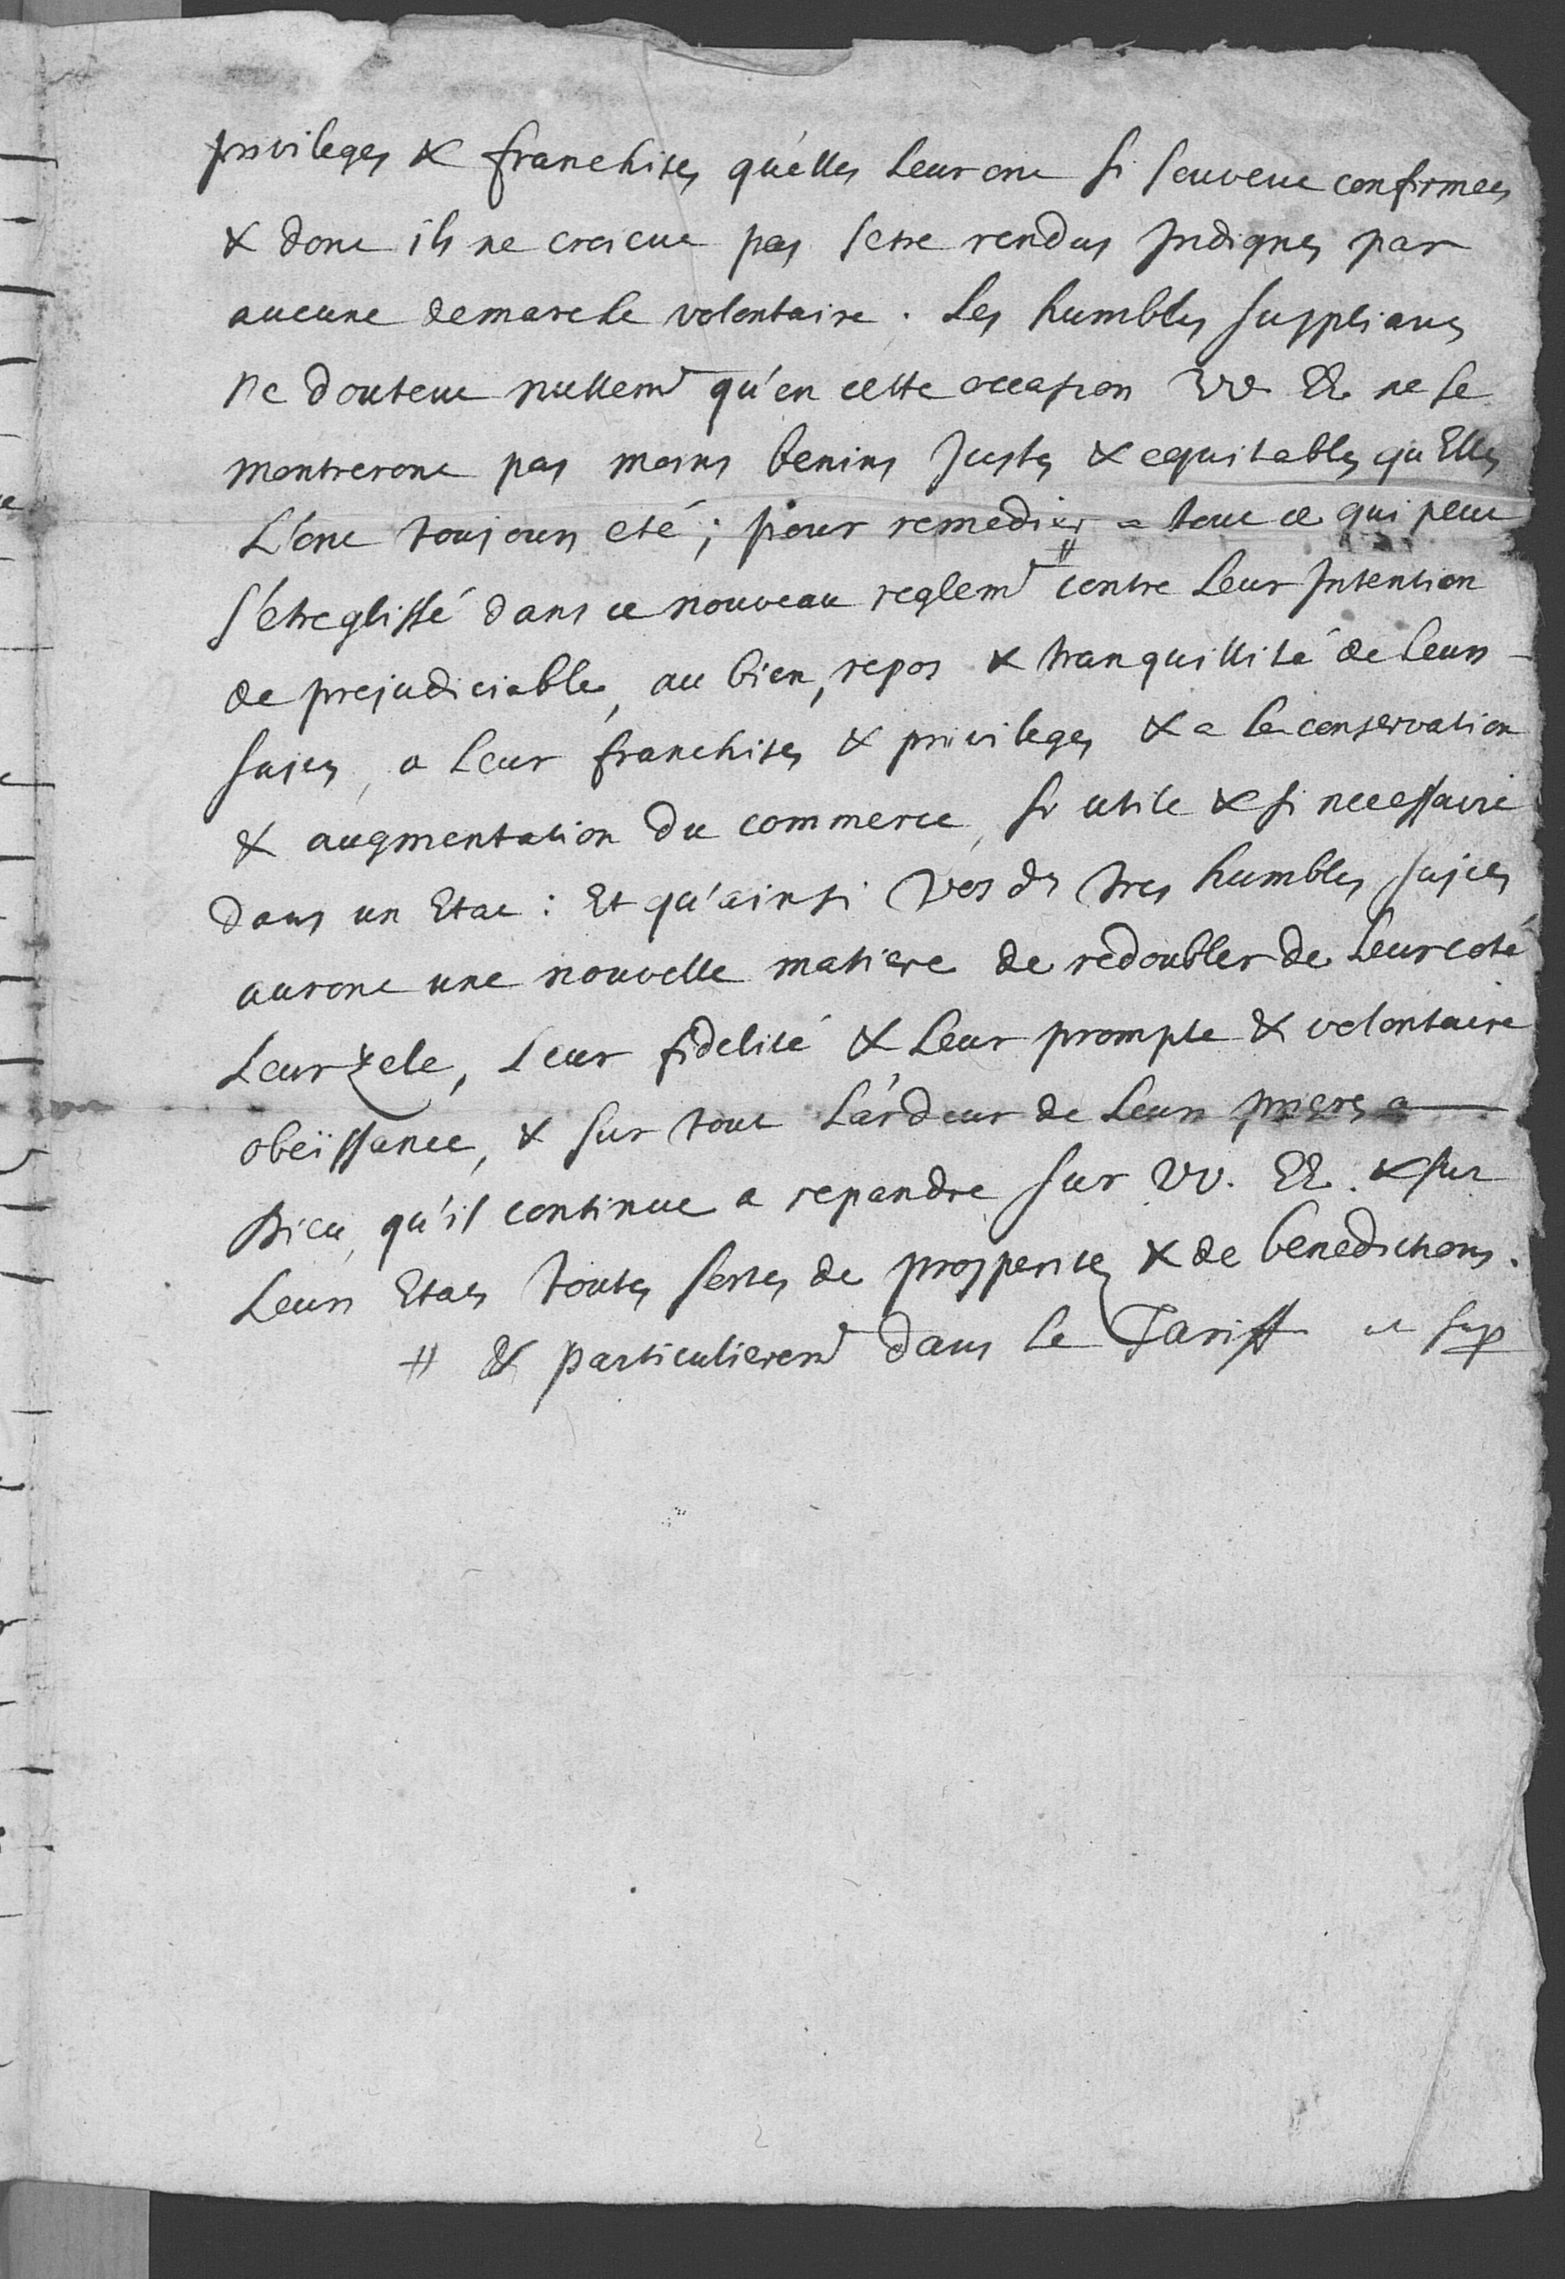 privileges & franchises qu'elles Leur ont si souvent confirmees
& dont ils ne croient pas setre rendus Indignes par
aucune demarche volontaire. Les humbles supplians
Ne doutent nullemt qu'en cette occasion VV. EE. ne se
montreront pas moins benins Justes & equitables qu'Elles
L'ont toujours eté; pour remedier a tout ce qui peut
s'etre glissé dans ce nouveau reglemt # contre Leur Intention
de prejudiciable, au bien, repos & tranquillité de Leurs
sujets, a Leur franchises & privileges & a la conservation
& augmentation du commerce, si utile & si necessaire
dans un Etat: Et qu'ainsi Vos ds tres humbles sujets
auront une nouvelle matiere de redoubler de Leur coté
Leur zele, Leur fidelité & Leur prompte & volontaire
obeïssance, & sur tout L'ardeur de Leurs prieres a
Dieu, qu'il continue a repandre sur VV. EE. & sur
Leurs Etats toutes sortes de prosperites & de benedictions.
# & particulieremt dans le Tariff ut sup